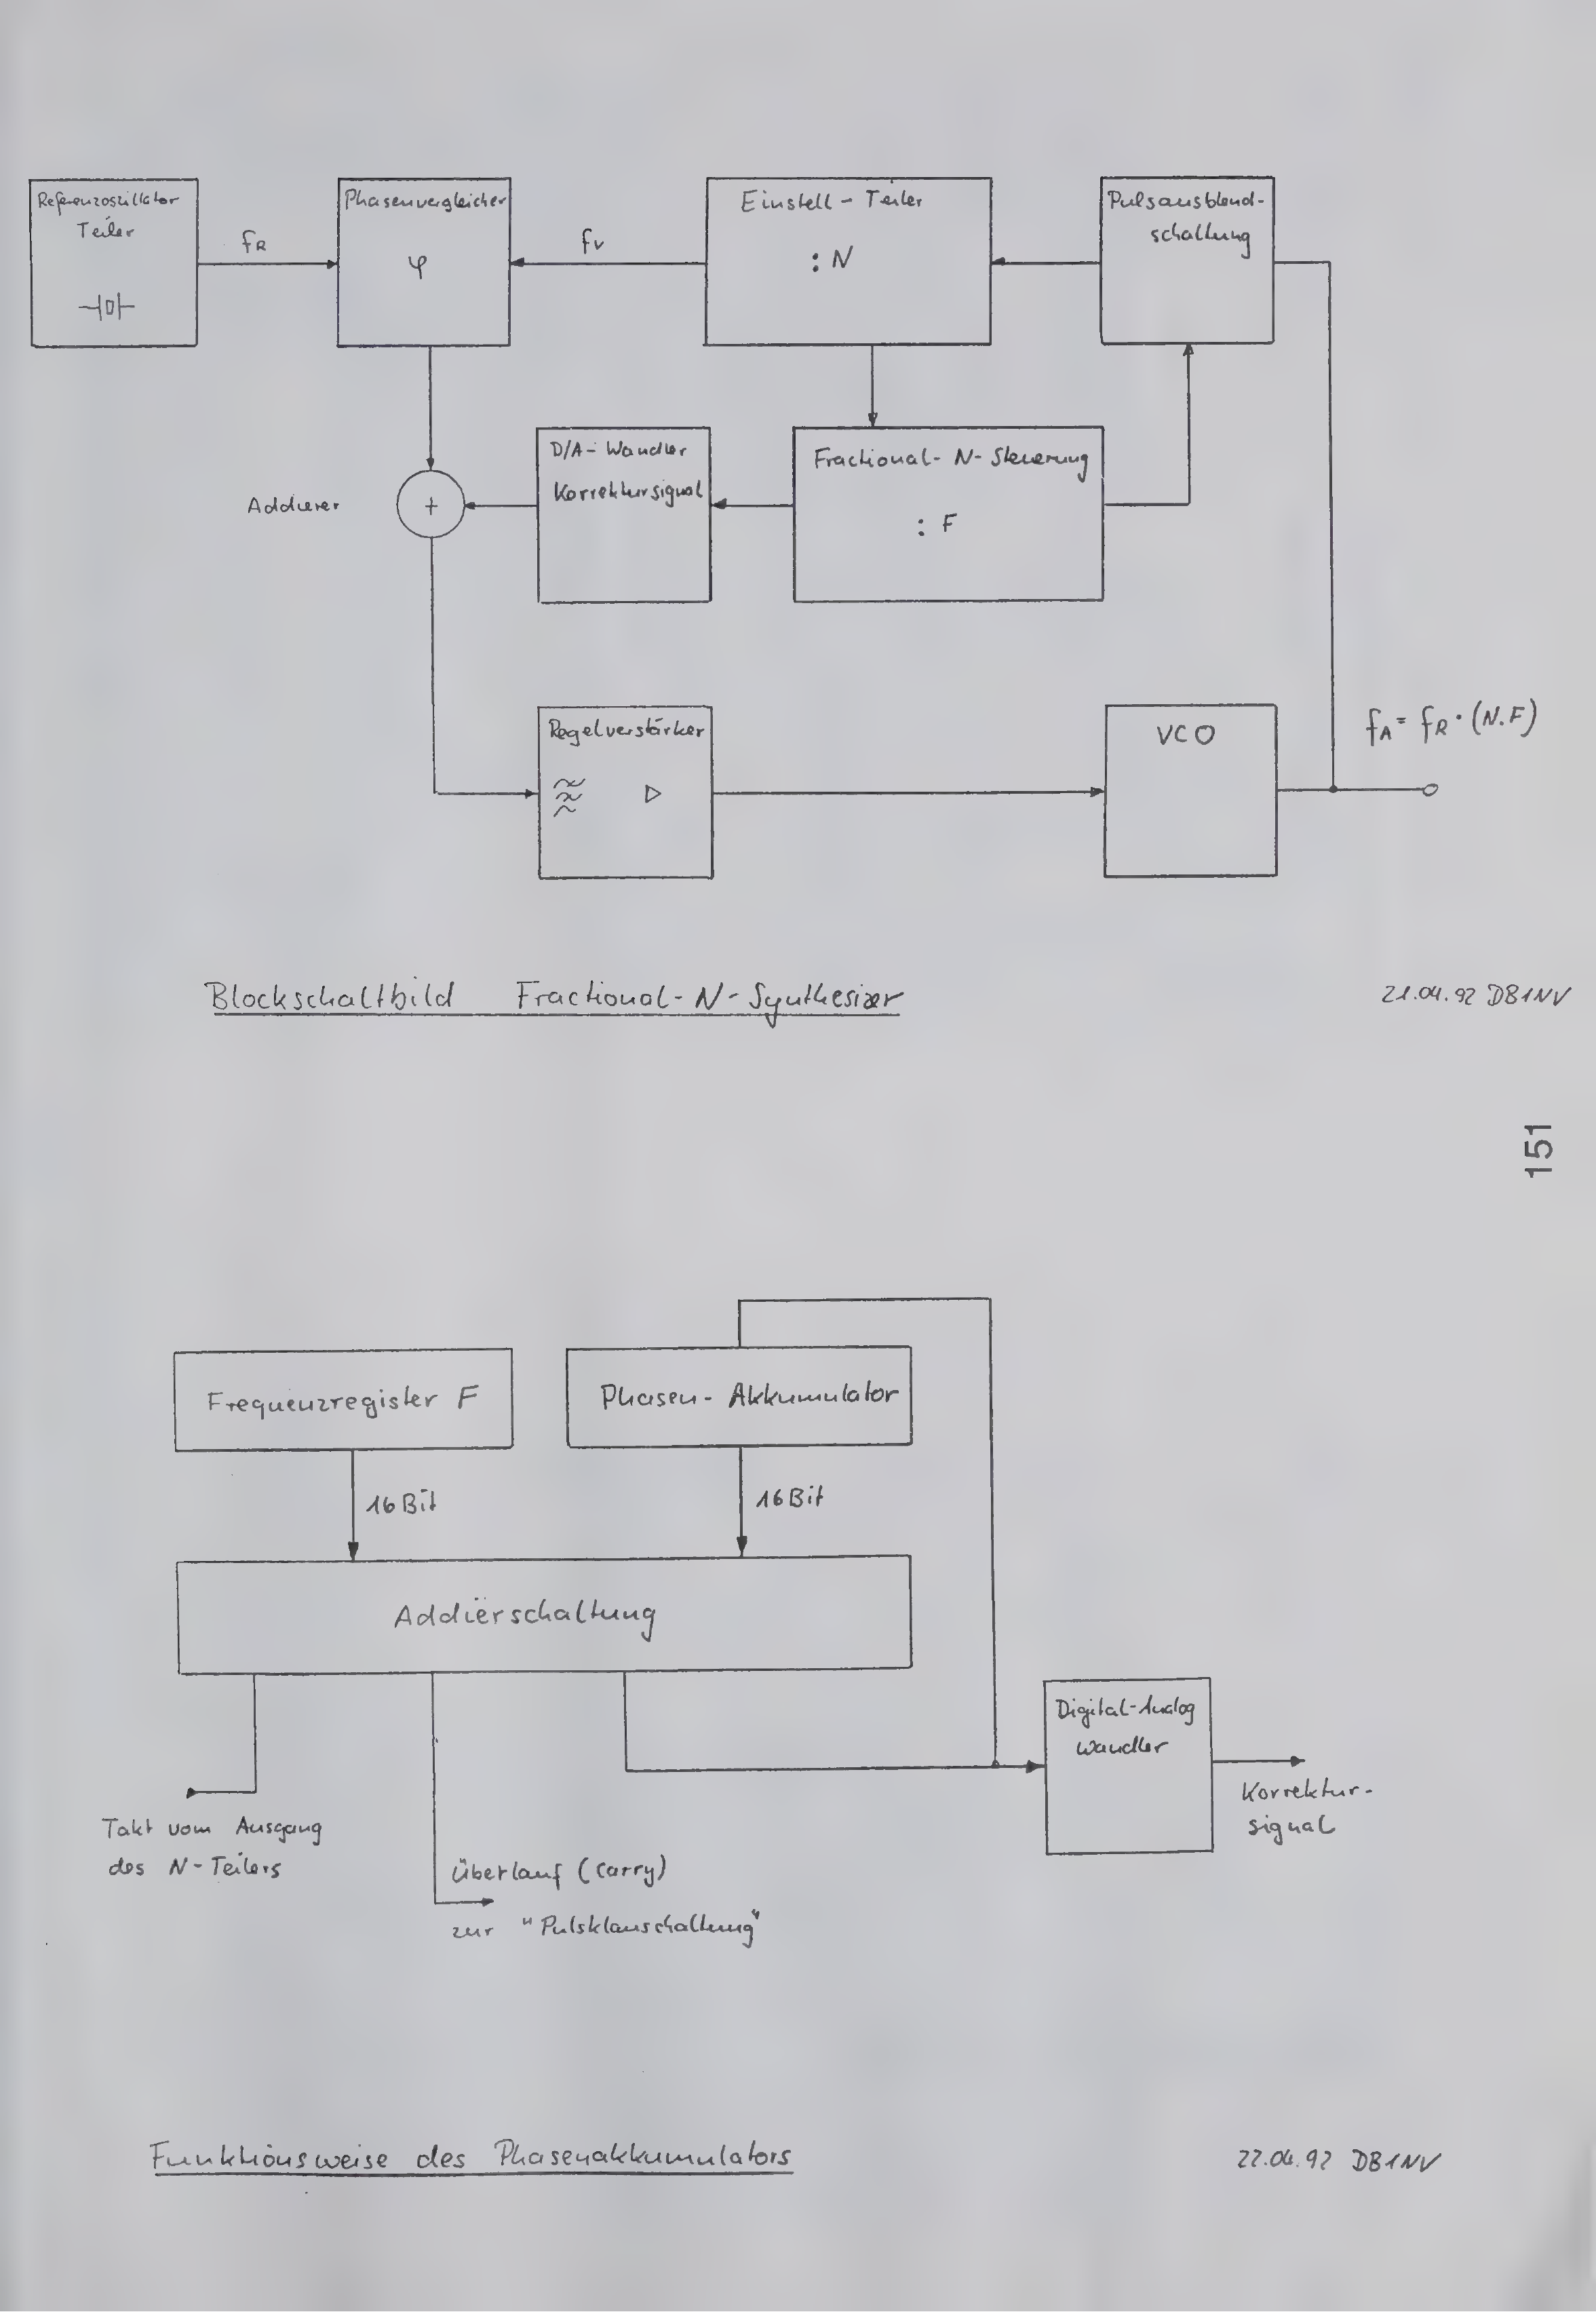 Referenzoszillator
Teiler
fR
Phasenvergleicher
φ
fV
Einstell - Teiler
: N
Pulsausblend-
schaltung
Addierer
+
D/A - Wandler
Korrektursignal
Fractional - N - Steuerung
: F
Regelverstärker
VCO
fA = fR · (N.F)
Blockschaltbild Fractional - N - Synthesizer
21.04.92 DB1NV
151
Frequenzregister F
Phasen - Akkumulator
16 Bit
16 Bit
Addierschaltung
Digital-Analog
Wandler
Korrektur-
signal
Takt vom Ausgang
des N - Teilers
Überlauf (carry)
zur "Pulsklauschaltung"
Funktionsweise des Phasenakkumulators
22.04.92 DB1NV